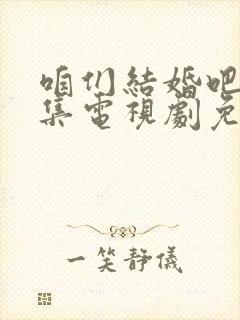 咱们結婚吧
集電視劇免
一笑靜儀